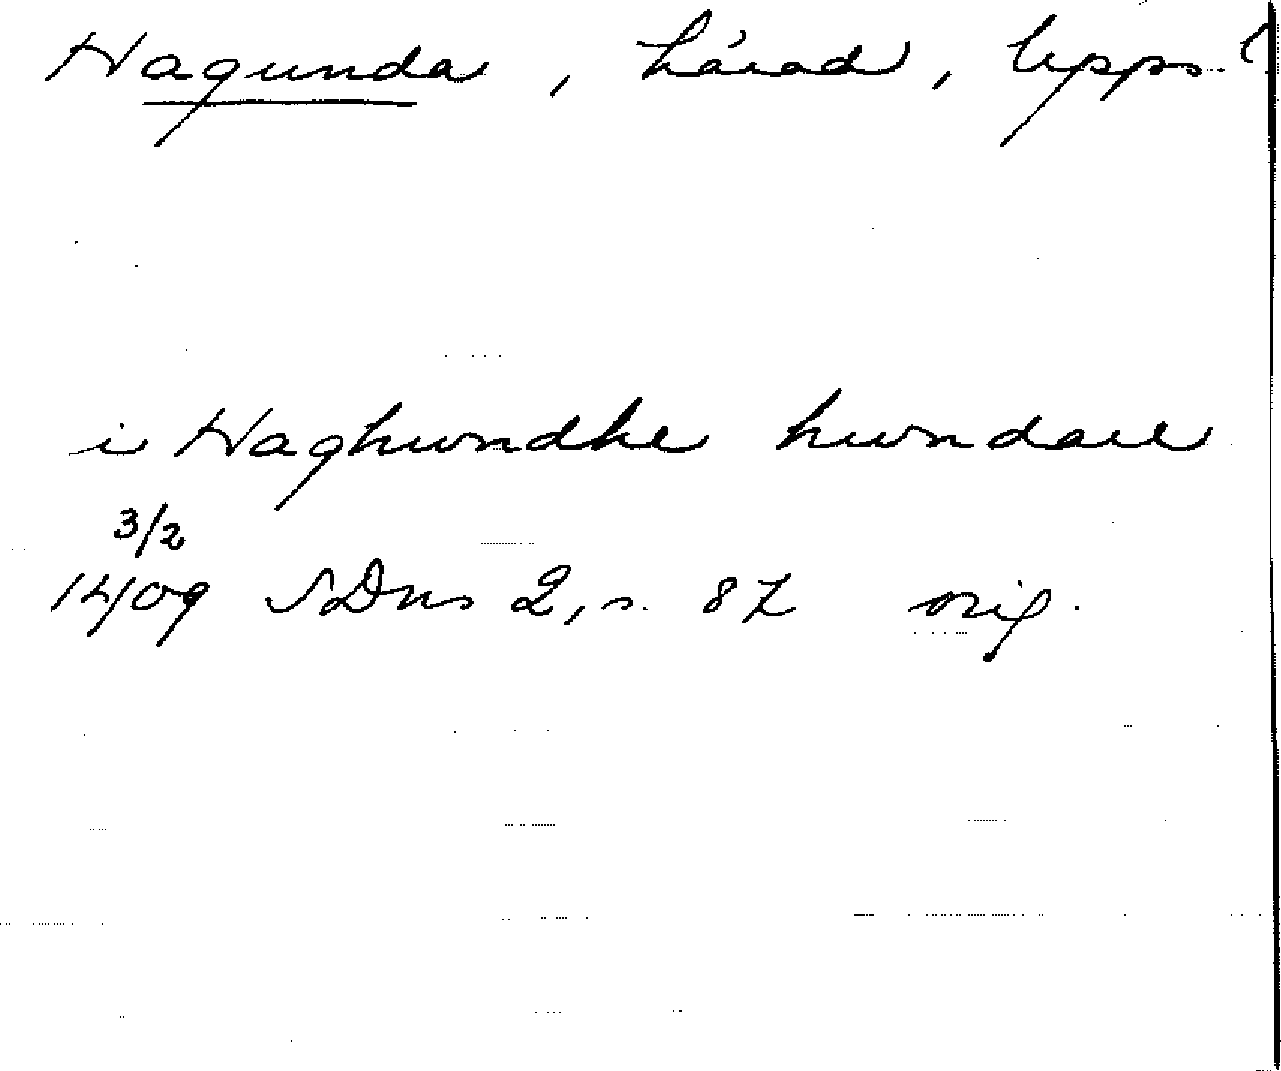 Hagunda, härad, Upps. l
i Haghundhe hundare
3/2
1409 SDns 2, s. 87 orig.